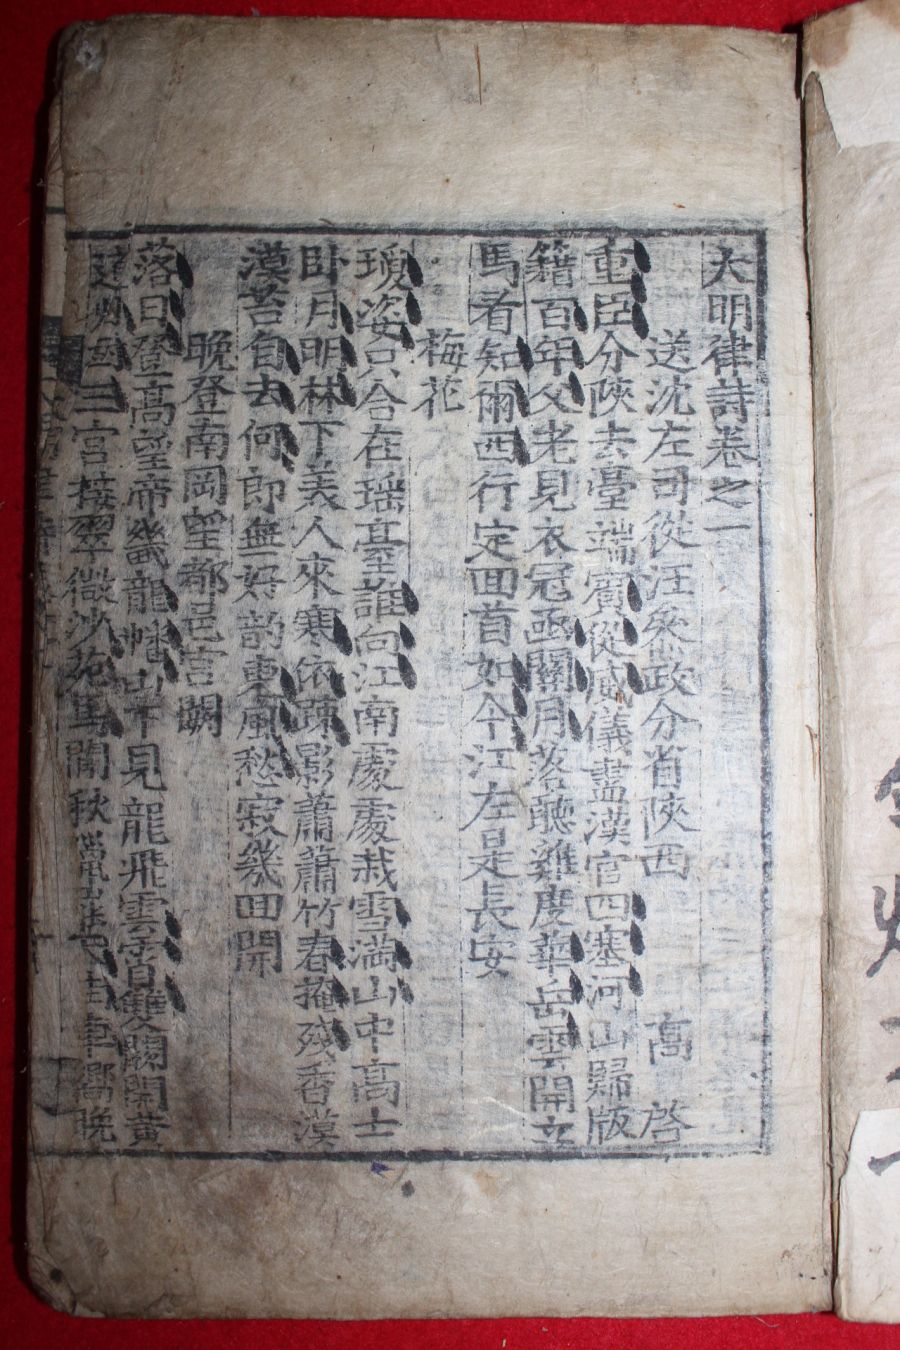 大明律詩卷之一
送沈左司從汪叅政分省陜西 髙啓
重臣分陜去臺端賓從威儀盡漢官四塞河山歸版
籍百年父老見衣冠函關月落聽雞度華岳雲開立
馬看知爾西行定回首如今江左是長安
梅花
瓊姿只合在瑶臺誰向江南處處栽雪滿山中髙士
卧月明林下美人來寒依疎影蕭蕭竹春掩殘香漠
漠苔自去何郎無好韵東風愁寂幾回開
晚登南岡望都邑宫闕
落日登髙望帝畿龍蟠山下見龍飛雲霄雙闕開黄
道烟三宫接翠微沙苑馬閒秋 晚